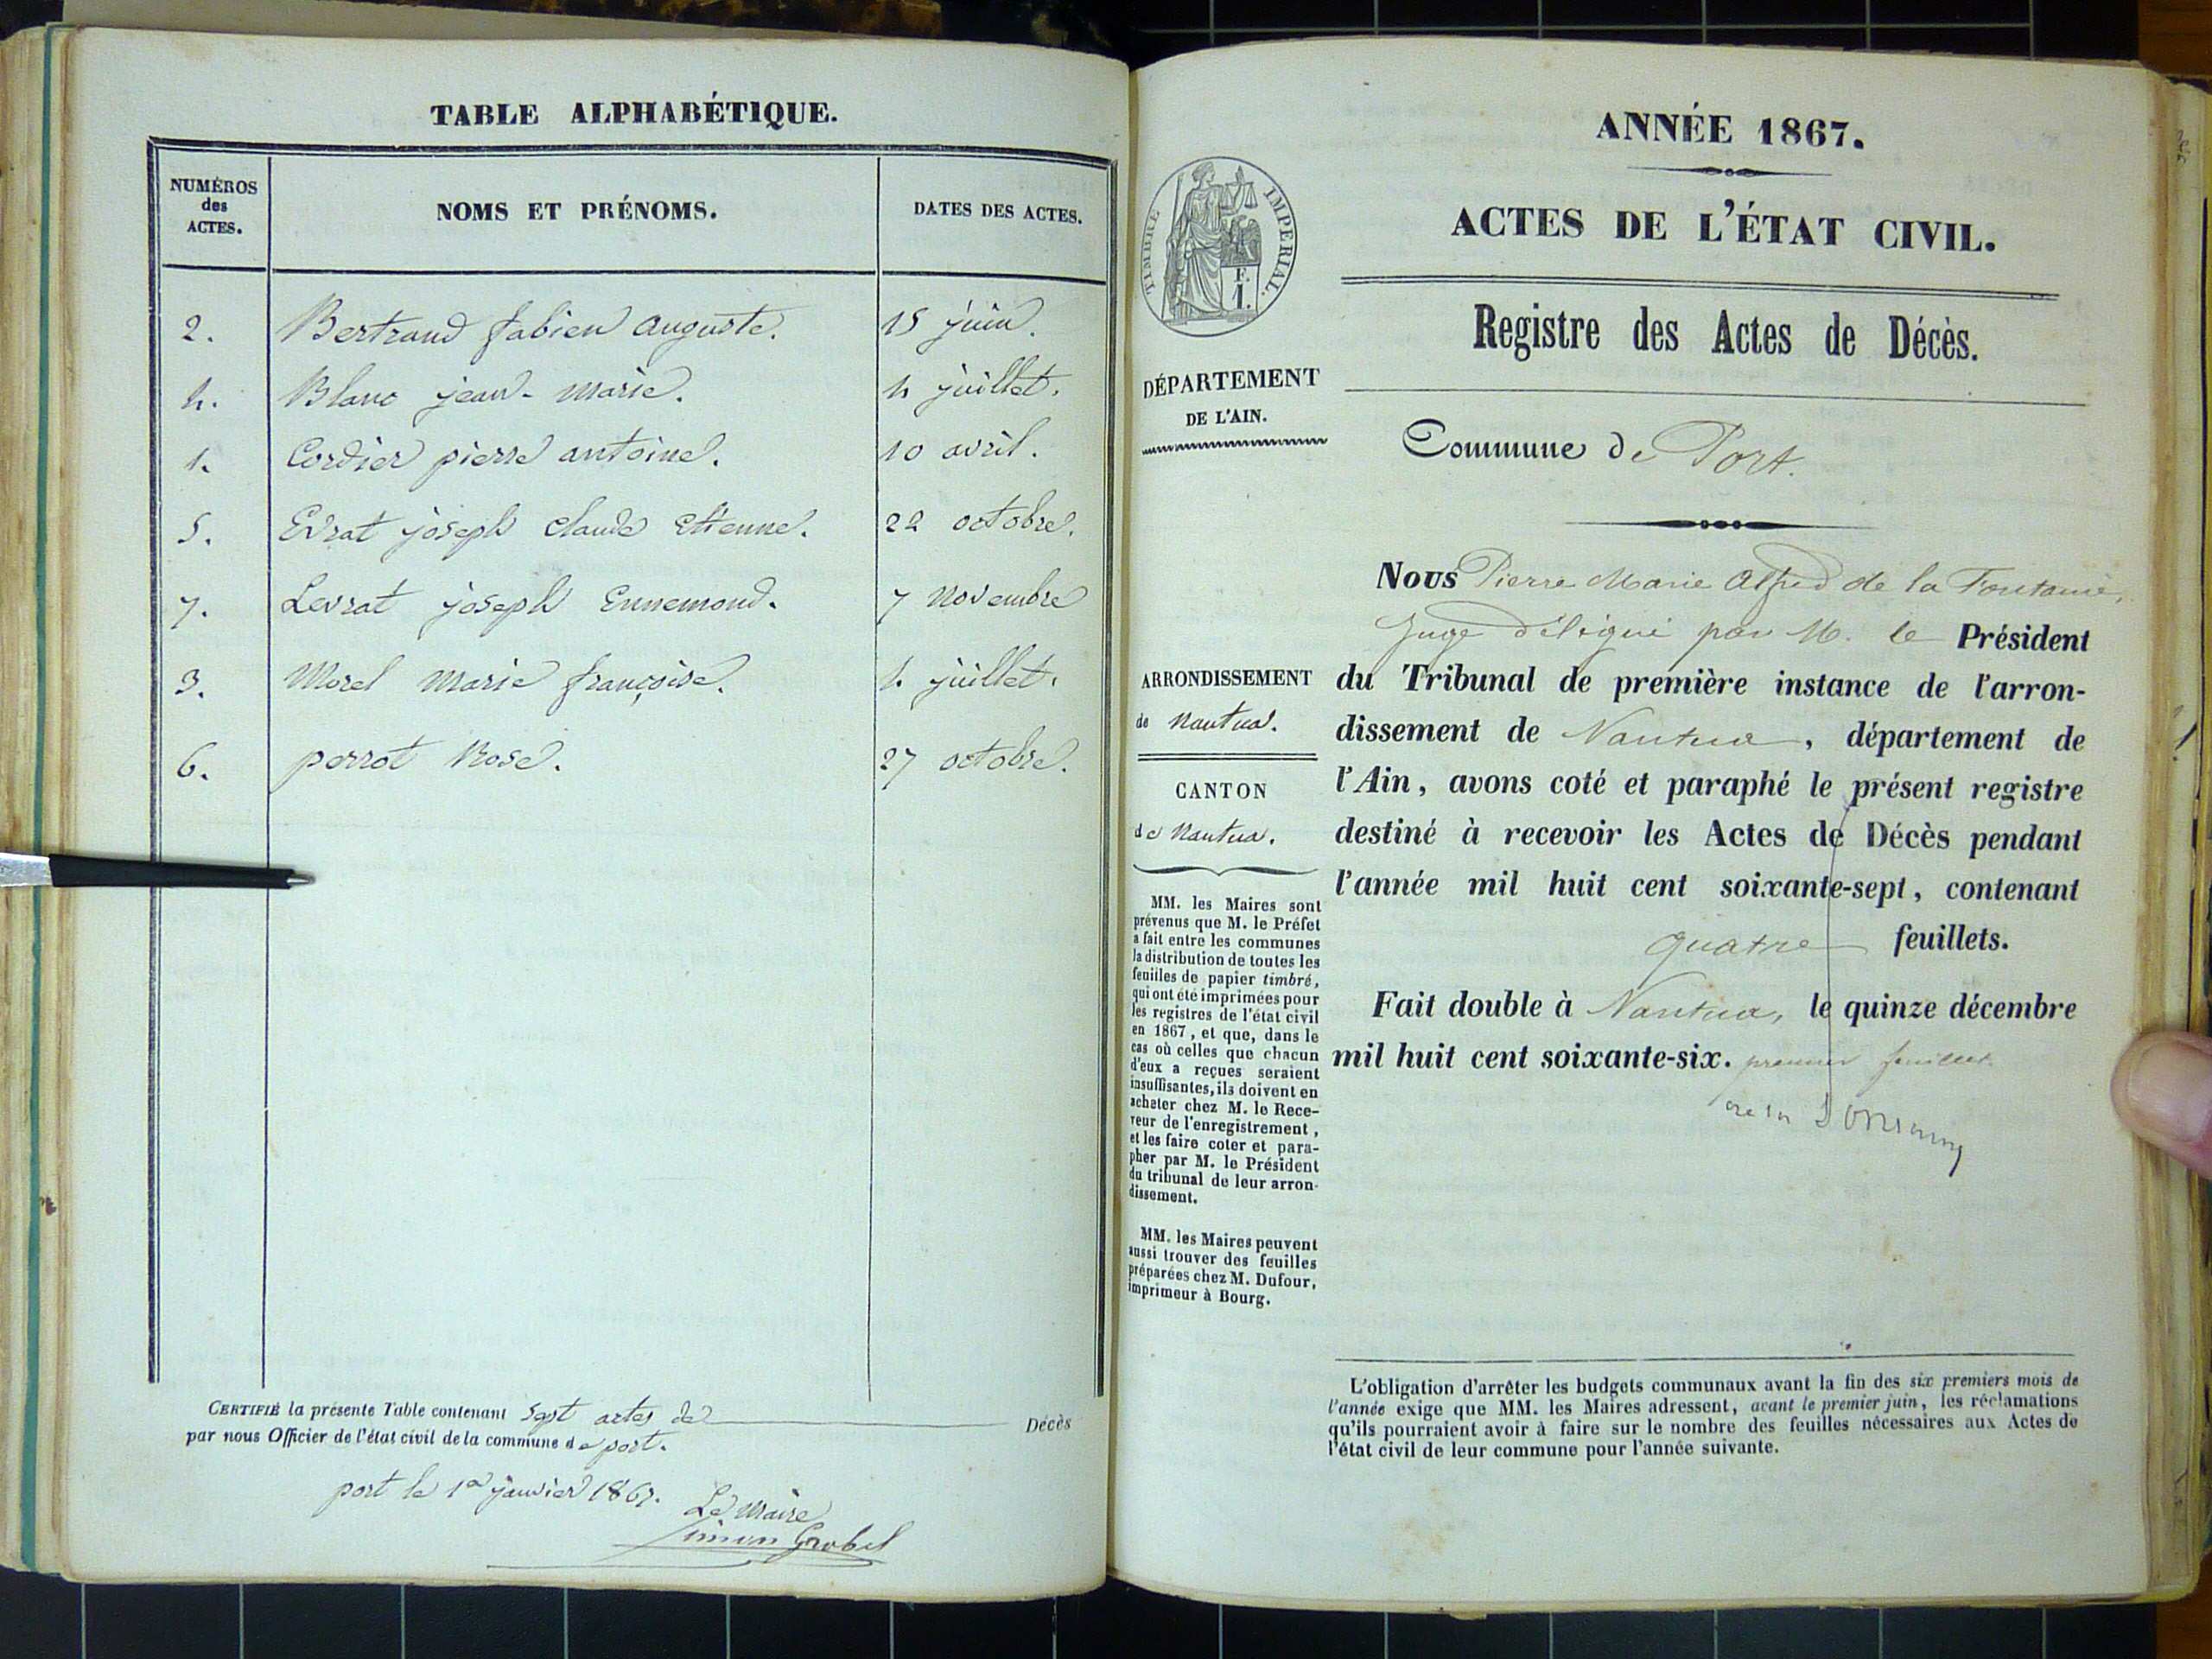 TABLE ALPHABÉTIQUE.
NUMÉROS
des
ACTES.
NOMS ET PRÉNOMS.
DATES DES ACTES.
2. Bertrand fabien auguste. 15 juin.
4. Blanc jean-marie. 4 juillet.
1. Cordier pierre antoine. 10 avril.
5. Evrat joseph claude Etienne. 22 octobre.
7. Levrat joseph Ennemond. 7 novembre
3. Morel marie françoise. 4 juillet.
6. perrot Rose. 27 octobre.
CERTIFIÉ la présente Table contenant Sept actes de Décès
par nous Officier de l'état civil de la commune de port.
port le 1er janvier 1867.
Le Maire
Simon Grobel
ANNÉE 1867.
ACTES DE L'ÉTAT CIVIL.
TIMBRE IMPERIAL.
F.
1.
Registre des Actes de Décès.
DÉPARTEMENT
DE L'AIN.
Commune de Port.
ARRONDISSEMENT
de Nantua.
CANTON
de Nantua.
MM. les Maires sont
prévenus que M. le Préfet
a fait entre les communes
la distribution de toutes les
feuilles de papier timbré,
qui ont été imprimées pour
les registres de l'état civil
en 1867, et que, dans le
cas où celles que chacun
d'eux a reçues seraient
insuffisantes, ils doivent en
acheter chez M. le Rece-
veur de l'enregistrement,
et les faire coter et para-
pher par M. le Président
du tribunal de leur arron-
dissement.
MM. les Maires peuvent
aussi trouver des feuilles
préparées chez M. Dufour,
imprimeur à Bourg.
Nous Pierre Marie Alfred de la Fontaine,
Juge délégué par M. le Président
du Tribunal de première instance de l'arron-
dissement de Nantua, département de
l'Ain, avons coté et paraphé le présent registre
destiné à recevoir les Actes de Décès pendant
l'année mil huit cent soixante-sept, contenant
quatre feuillets.
Fait double à Nantua, le quinze décembre
mil huit cent soixante-six. premier feuillet
L'obligation d'arrêter les budgets communaux avant la fin des six premiers mois de
l'année exige que MM. les Maires adressent, avant le premier juin, les réclamations
qu'ils pourraient avoir à faire sur le nombre des feuilles nécessaires aux Actes de
l'état civil de leur commune pour l'année suivante.